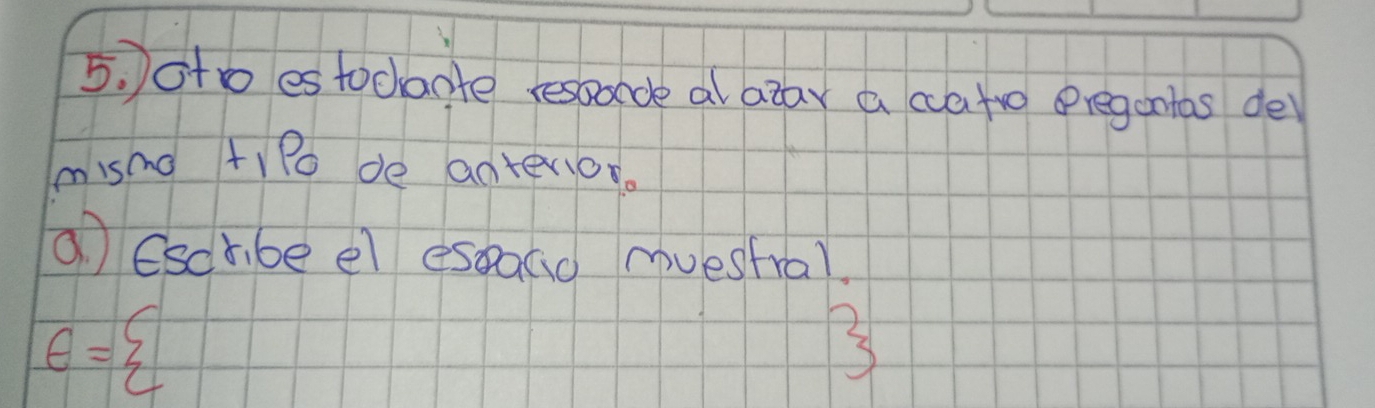 5.) Otro estudiante responde al azar a cuatro preguntas del
mismo tipo de anterior.
a.) Escribe el espacio muestral.
E = { }